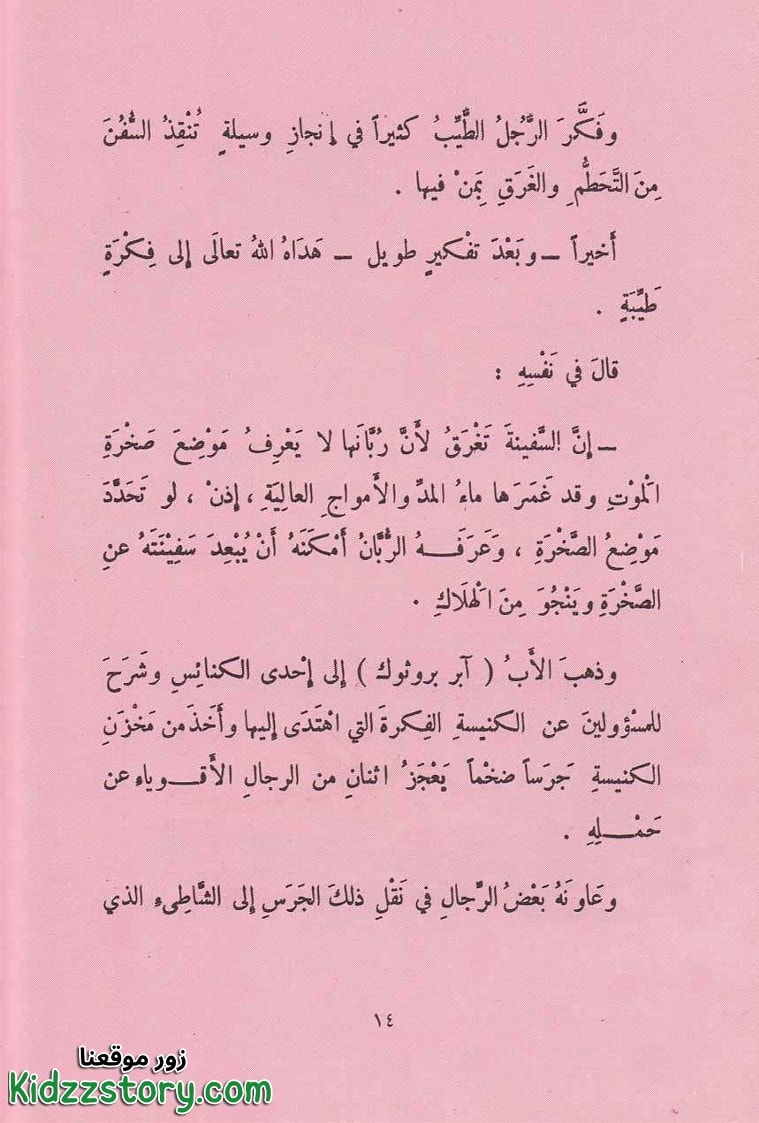 وفَكَّرَ الرَّجُلُ الطَّيِّبُ كثيراً في إنجازِ وسيلةٍ تُنْقِذُ السُّفُنَ
مِنَ التَّحَطُّمِ والغَرَقِ بِمَنْ فيها .
أخيراً – وبَعْدَ تفْكيرٍ طويل – هَدَاهُ اللهُ تعالَى إلى فِكْرَةٍ
طَيِّبَةٍ .
قالَ في نَفْسِهِ :
– إنَّ السَّفينةَ تَغْرَقُ لأَنَّ رُبَّانَها لا يَعْرِفُ مَوْضِعَ صَخْرَةِ
الْموْتِ وقد غَمَرَها ماءُ المدِّ والأَمواجِ العالِيَةِ ، إذنْ ، لو تَحَدَّدَ
مَوْضِعُ الصَّخْرَةِ ، وَعَرَفَــهُ الرُّبَّانُ أمْكَنَهُ أَنْ يُبْعِدَ سَفِيْنَتَهُ عنِ
الصَّخْرَةِ ويَنْجُوَ مِنَ الْهلَاكِ .
وذهبَ الأَبُ ( آبر بروثوك ) إلى إحْدى الكنائِسِ وشَرَحَ
للمسْؤولينَ عن الكنيسةِ الفِكرةَ التي اهْتَدَى إليها وأَخذَ من مَخْزَنِ
الكنيسةِ جَرَساً ضخْماً يَعْجَزُ اثنانِ من الرجالِ الأَقــوياءِ عن
حَمْــلِهِ .
وعَاونَهُ بَعْضُ الرِّجالِ في نَقْلِ ذلكَ الجَرَسِ إلى الشَّاطِىءِ الذي
١٤
زور موقعنا
Kidzzstory.com